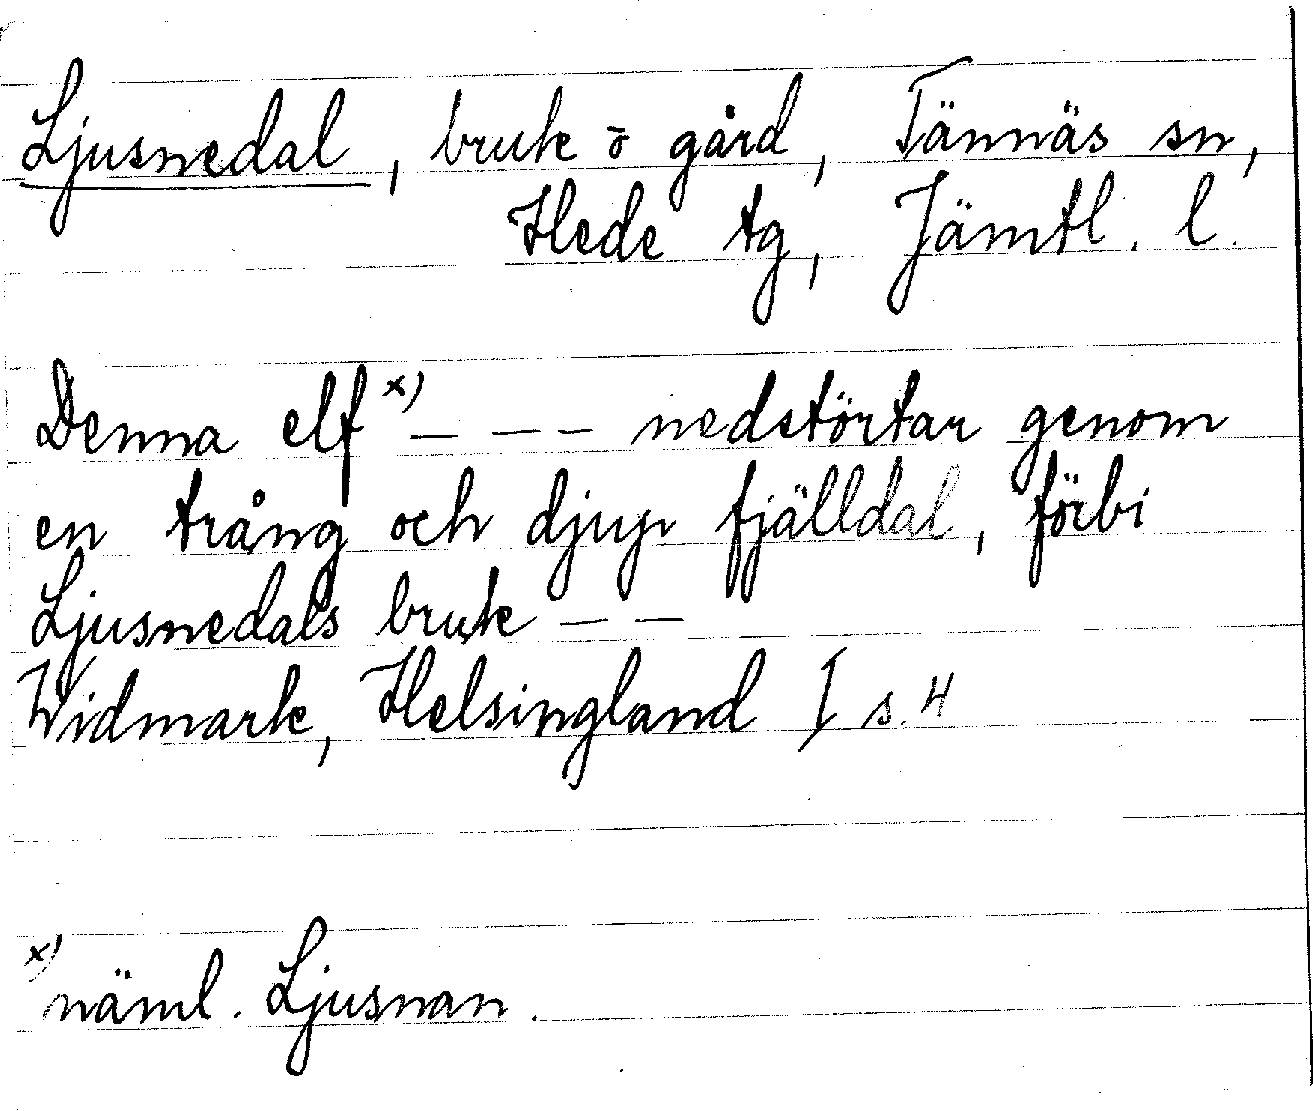 Ljusnedal, bruk o gård, Tännäs sn,
Hede tg, Jämtl. l.
Denna elf x) — — — nedstörtar genom
en trång och djup fjälldal, förbi
Ljusnedals bruk — —
Widmark, Helsingland I s. 4
x) näml. Ljusnan.